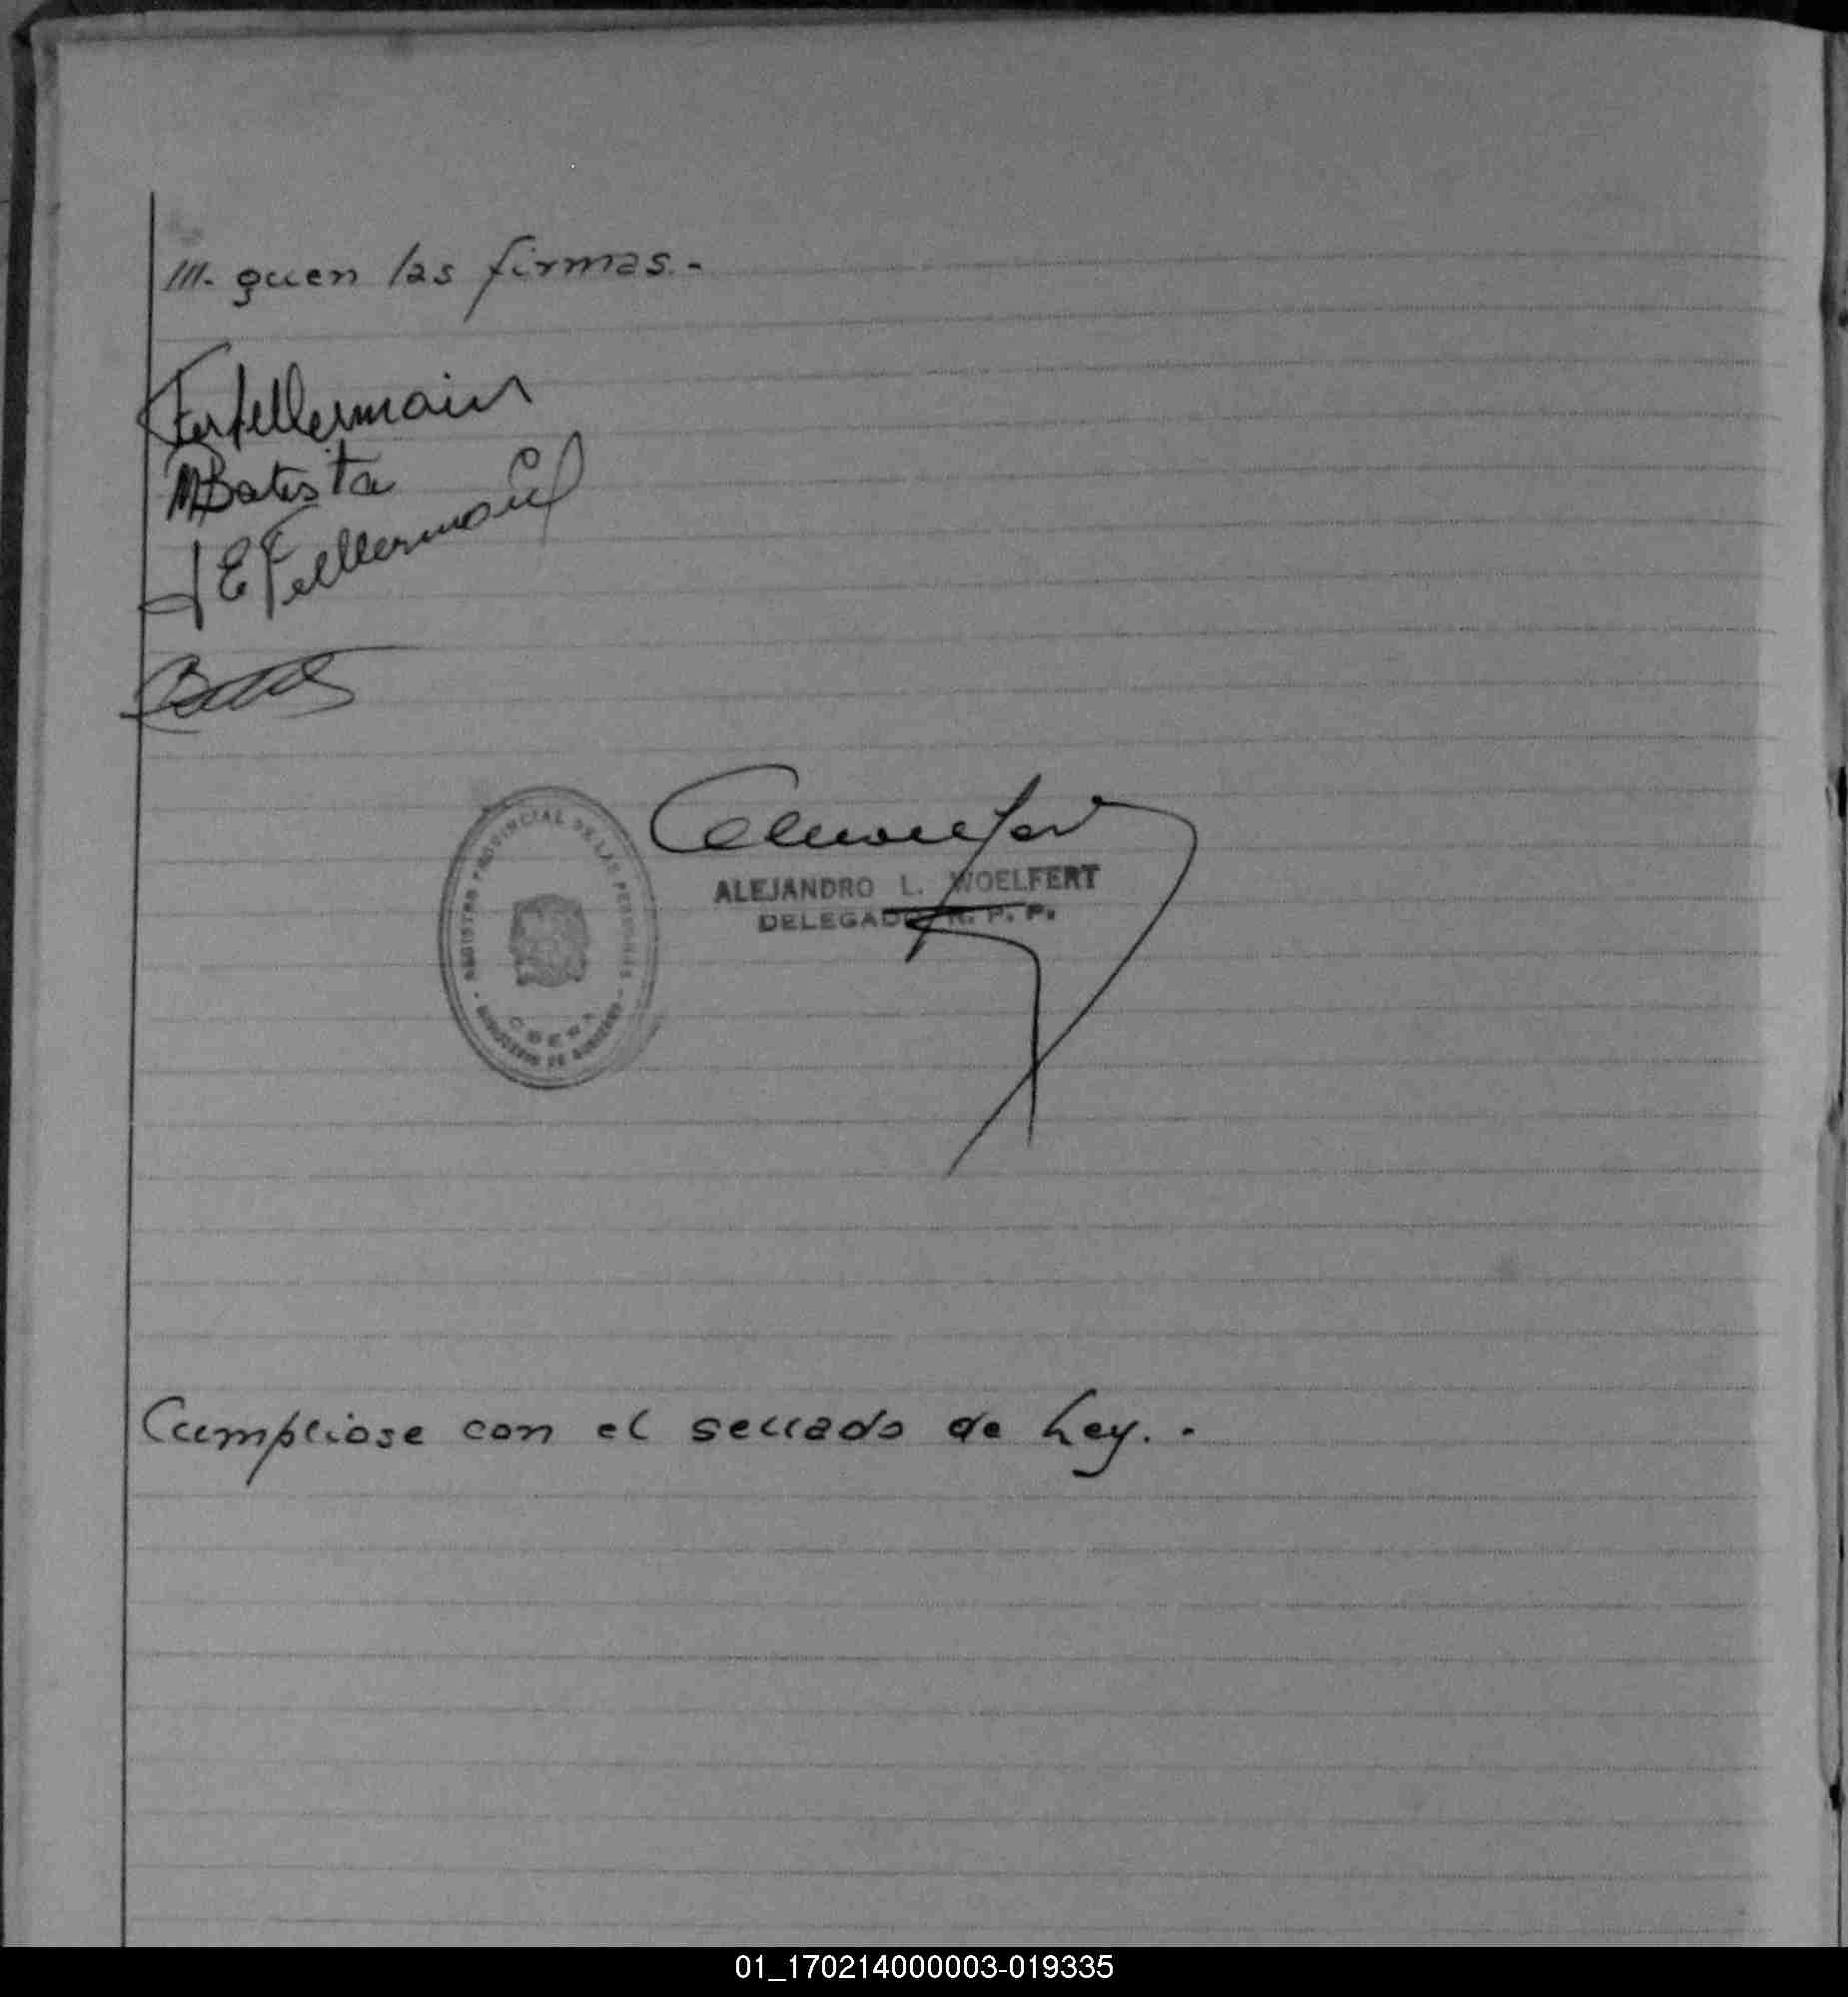 ///. guen las firmas.-
Fellermain
MBatista
J E Fellermain
REGISTRO PROVINCIAL DE LAS PERSONAS
MINISTERIO DE GOBIERNO
ALEJANDRO L. WOELFERT
DELEGADO R. P. P.
Cumpliose con el sellado de Ley. -
01_170214000003-019335